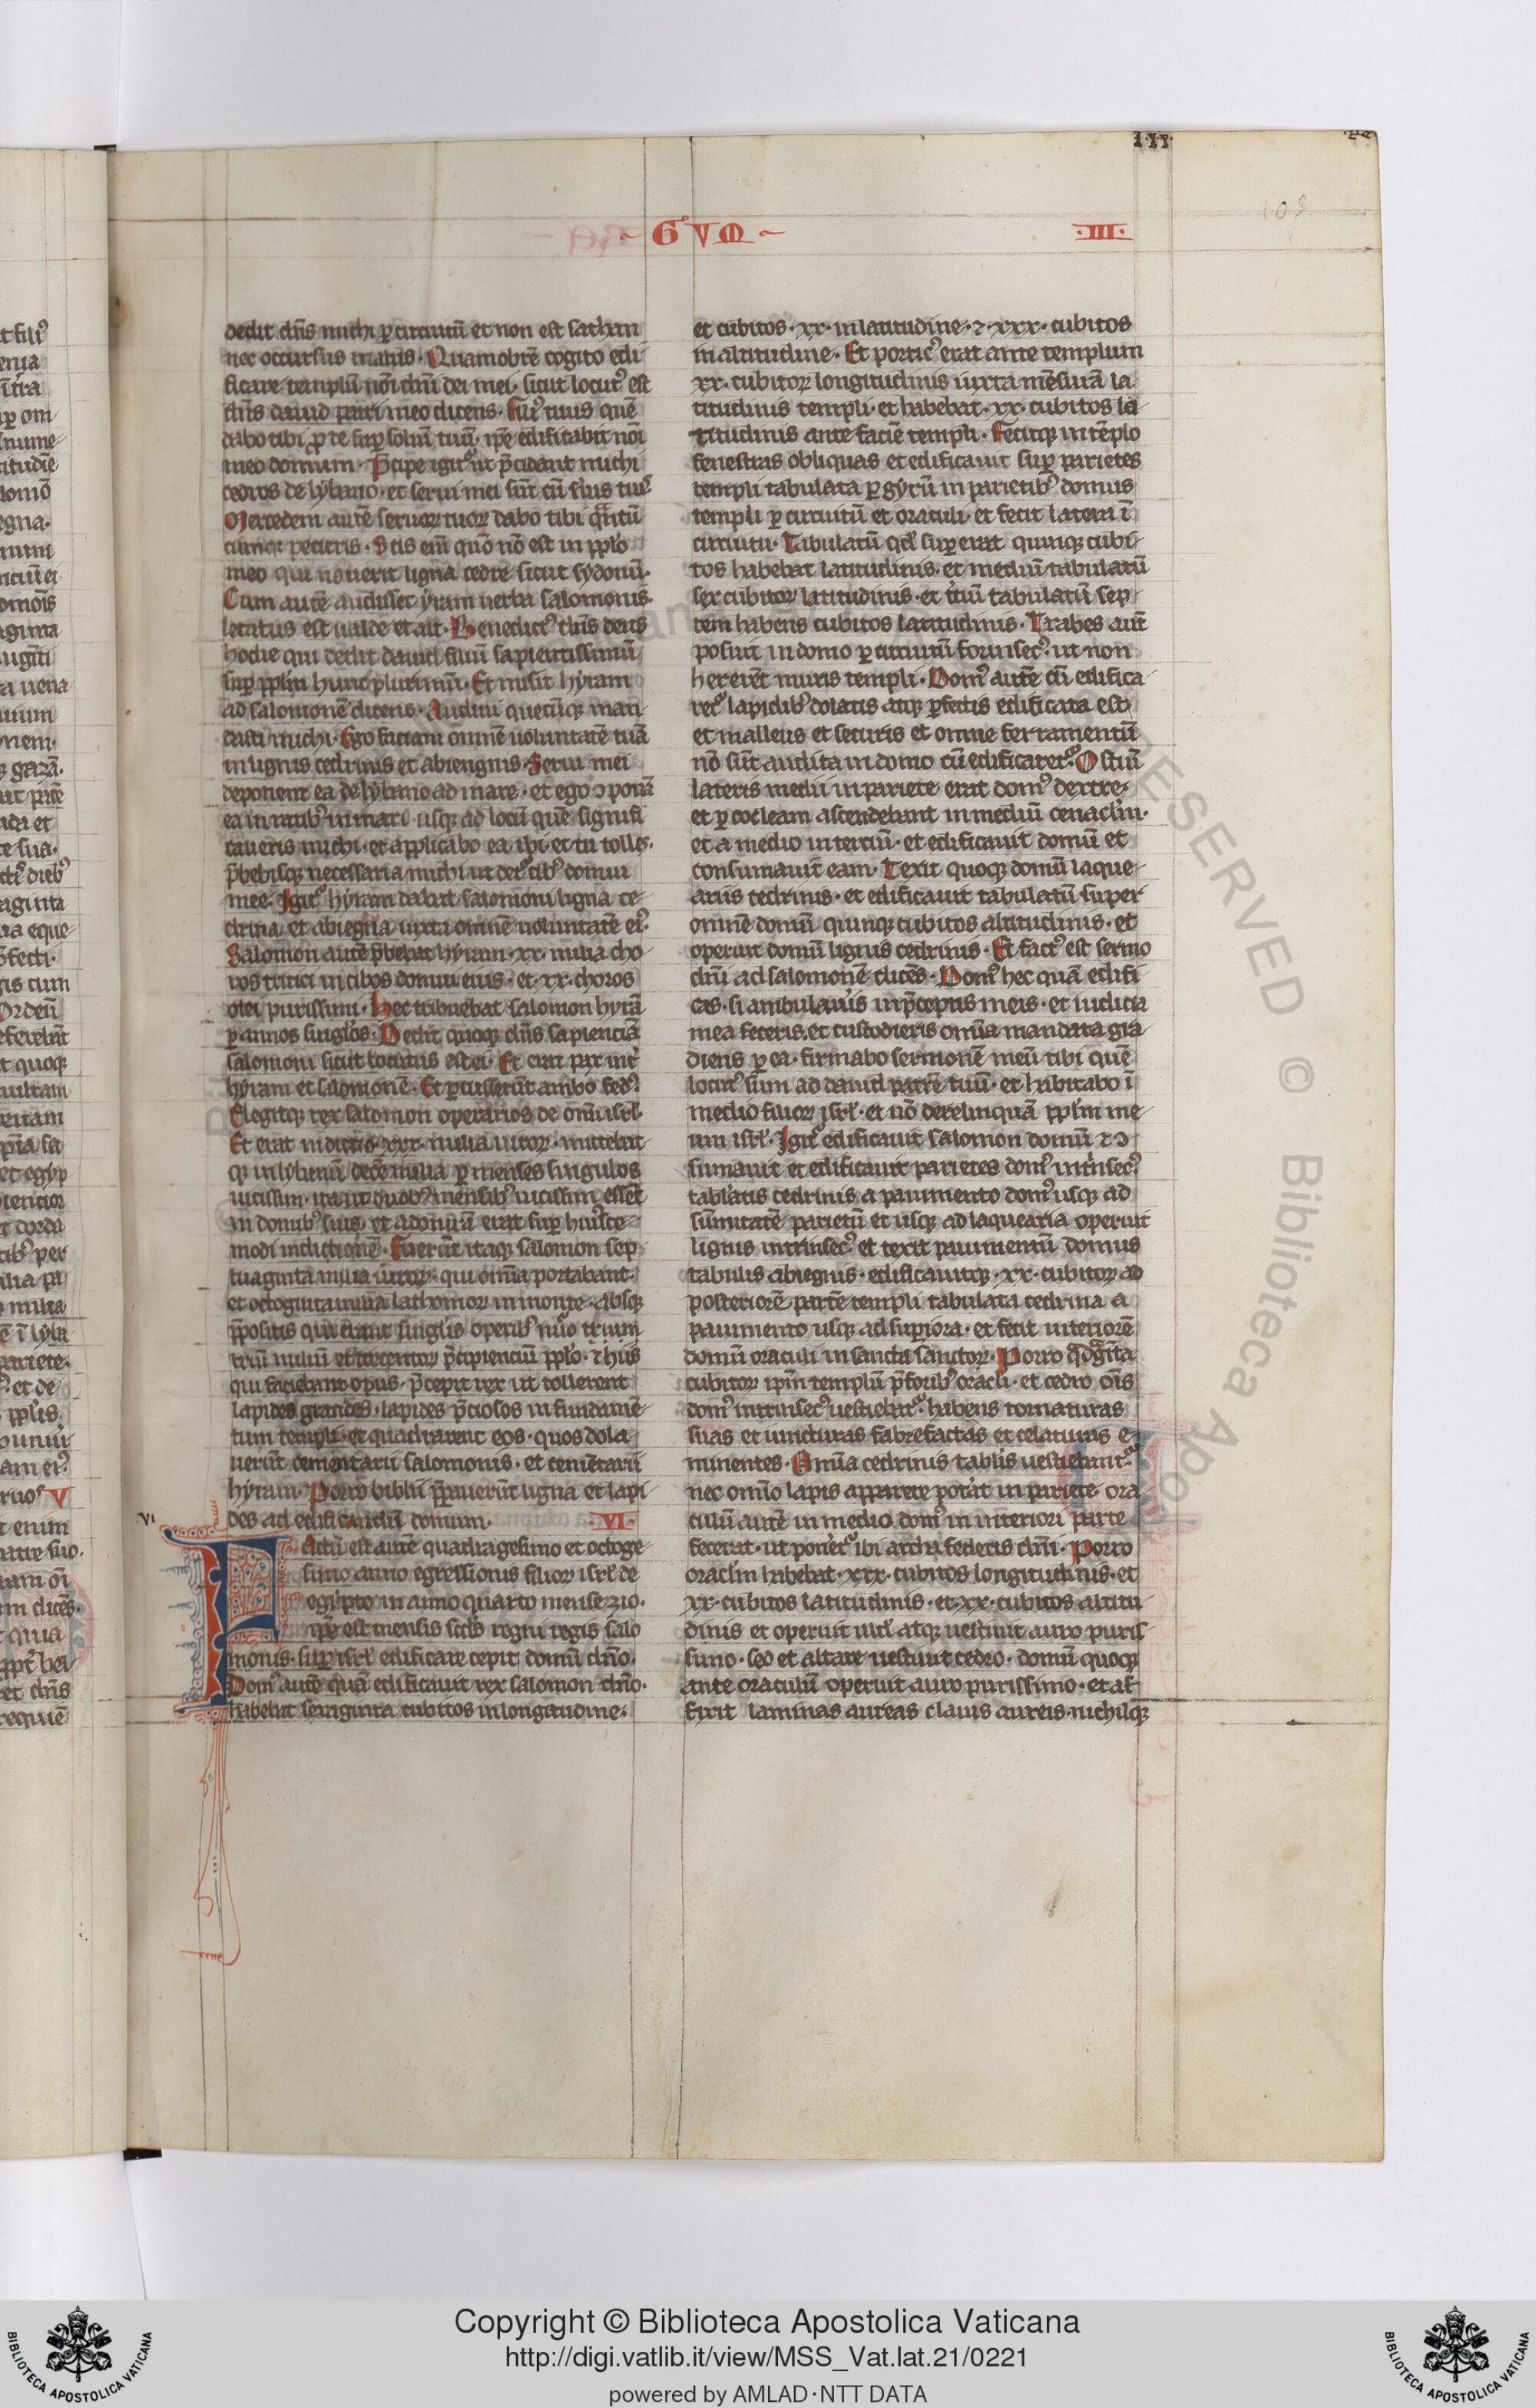 G V M
·III·
dedit dn̄s michi ꝑ circuitū et non est sathan
nec occursus malus· Quamobrē cogito edi
ficare templū noī dn̄i dei mei· sicut locutꝰ est
dn̄s dauid patri meo dicens· filiꝰ tuus quē
dabo tibi ꝓ te suꝑ soliū tuū· ip̄e edificabit noī
meo domum· P̄cipe igitᷣ ut p̄cidant michi
cedros de lybano· et serui mei sint cū ẜuis tuis
Mercedem autē seruoꝝ tuoꝝ dabo tibi qͣntū
cumqꝫ pecieris· Scis eni quō nō est in pp̄lo
meo qui nouerit ligna cedere sicut sydonii·
Cum autē audisset yram uerba salomonis·
letatus est ualde et ait· Benedictꝰ dn̄s deus
hodie qui dedit dauid filiū sapientissimū
suꝑ pp̄lm hunc plurimū· Et misit hyram
ad salomonē dicens· Audiui quecūqꝫ man
dasti michi· Ego faciam omnē uoluntatē tuā
in lignis cedrinis et abiegnis· Serui mei
deponent ea de lybano ad mare· et ego ↄponā
ea in ratibꝰ in mari usqꝫ ad locū quē signifi
caueris michi· et applicabo ea ibi· et tu tolles·
p̄bebisqꝫ necessaria michi ut detᷣ cibꝰ domui
mee· Igitᷣ hyram dabat salomoni ligna ce
drina et abiegna iuxta omnē uoluntatē eiꝰ·
Salomon autē p̄bebat hyram ·xx· milia cho
ros tritici in cibos domui eius· et ·xx· choros
olei purissimi· Hec tribuebat salomon hyrā
ꝑ annos singlos· Dedit quoqꝫ dn̄s sapienciā
salomoni sicut locutus est ei· Et erat pax int̄
hyram et salomonē· Et ꝑcusserūt ambo fedꝰ·
Elegitqꝫ rex salomon operarios de omī isrl̄·
Et erat indictio ·xxx· milia uiroꝝ· mittebat
qꝫ in lybanū decē milia ꝑ menses singulos
uicissim· ita ut duobꝰ mensibꝰ uicissim essēt
in domibꝰ suis· et adonirā erat suꝑ hiuꝰce
modi indictionē· Fuerūt itaqꝫ salomon sep
tuaginta milia uiroꝝ· qui omīa portabant·
et octoginta milia lathomoꝝ in monte· absqꝫ
p̄positis qui erant singlis operibꝰ nūo trium
triū miliū et trecentoꝝ p̄cipienciū pp̄lo· ⁊ hiis
qui faciebant opus· p̄cepit rex ut tollerent
lapides grandes· lapides p̄ciosos in fundamē
tum templi· et quadrarent eos· quos dola
uerūt cementarii salomonis· et cementarii
hyram· Porro biblii p̄pauerūt ligna et lapi
des ad edificandū domum· ·VI·
VI
Factū est autē quadragesimo et octoge
simo anno egressionis filioꝝ isrl̄ de
egypto in anno quarto mense zio·
ip̄e est mensis sctd̄s regni regis salo
monis· suꝑ isrl̄ edificare cepit domū dn̄o·
Domꝰ autē quā edificauit rex salomon dn̄o·
habebat sexaginta cubitos in longitudine·
et cubitos ·xx· in latitudine· ⁊ ·xxx· cubitos
in altitudine· Et porticꝰ erat ante templum
xx· cubitoꝝ longitudinis iuxta mēsurā la
titudinis templi· et habebat ·xx· cubitos la
titudinis ante faciē templi· Fecitqꝫ in tēplo
fenestras obliquas et edificauit suꝑ parietes
templi tabulata ꝑ gyrū in parietibꝰ domus
templi ꝑ circuitū et oraculi· et fecit latera ī
circuitu· Tabulatū qd̄ suꝑ erat quinqꝫ cubi
tos habebat latitudinis· et mediū tabulatū
sex cubitoꝝ latitudinis· et t̄ciū tabulatū sep
tem habens cubitos latitudinis· Trabes aut̄
posuit in domo ꝑ circuitū forinsecꝰ· ut non
hererēt muris templi· Domꝰ autē cū edifica
retᷣ lapidibꝰ dolatis atqꝫ ꝑfectis edificata est·
et malleus et securis et omne ferramentū
nō sūt audita in domo cū edificaretᷣ· Ostiū
lateris medii in pariete erat domꝰ dextre·
et ꝑ cocleam ascendebant in mediū cenacl̄m·
et a medio in terciū· et edificauit domū et
consumauit eam· Texit quoqꝫ domū laque
ariis cedrinis· et edificauit tabulatū super
omnē domū quinqꝫ cubitos altitudinis· et
operuit domū lignis cedrinis· Et factꝰ est sermo
dn̄i ad salomonē dicēs· Domꝰ hec quā edifi
cas· si ambulaueris in p̄ceptis meis· et iudicia
mea feceris· et custodieris omīa mandata gra
diens ꝑ ea· firmabo sermonē meū tibi quē
locutꝰ sum ad dauid patrē tuū· et habitabo ī
medio filioꝝ isrl̄· et nō derelinquā pp̄lm me
um isrl̄· Igitᷣ edificauit salomon domū ⁊ ↄ
sumauit et edificauit parietes domꝰ int̄nsecꝰ
tabl̄atis cedrinis a pauimento domꝰ usqꝫ ad
sūmitatē parietū et usqꝫ ad laquearia operuit
lignis intrinsecꝰ et texit pauimentū domus
tabulis abiegnis· edificauitqꝫ ·xx· cubitoꝝ ad
posteriorē partē templi tabulata cedrina a
pauimento usqꝫ ad suꝑiora· et fecit interiorē
domū oraculi in sancta sanctoꝝ· Porro qͣdͣgīta
cubitoꝝ ip̄m templū p̄ foribꝰ oracl̄i· et cedro oīs
domꝰ intrinsecꝰ uestiebatᷣ· habens tornaturas
suas et iuncturas fabrefactas et celaturas e
minentes· Omīa cedrinis tablis uestiebantᷣ
nec omīo lapis apparere potat̄ in pariete ora
culū autē in medio domꝰ in interiori parte
fecerat· ut poneretᷣ ibi archa federis dn̄i· Porro
oracl̄m habebat ·xx· cubitos longitudinis· et
xx· cubitos latitudinis· et xx· cubitos altitu
dinis et operuit illd̄ atqꝫ uestiuit auro puris
simo· sed et altare uestiuit cedro· domū quoqꝫ
ante oraculū operuit auro purissimo· et af
fixit laminas aureas clauis aureis· nichilqꝫ
Copyright © Biblioteca Apostolica Vaticana
http://digi.vatlib.it/view/MSS_Vat.lat.21/0221
powered by AMLAD·NTT DATA
BIBLIOTECA APOSTOLICA VATICANA
BIBLIOTECA APOSTOLICA VATICANA